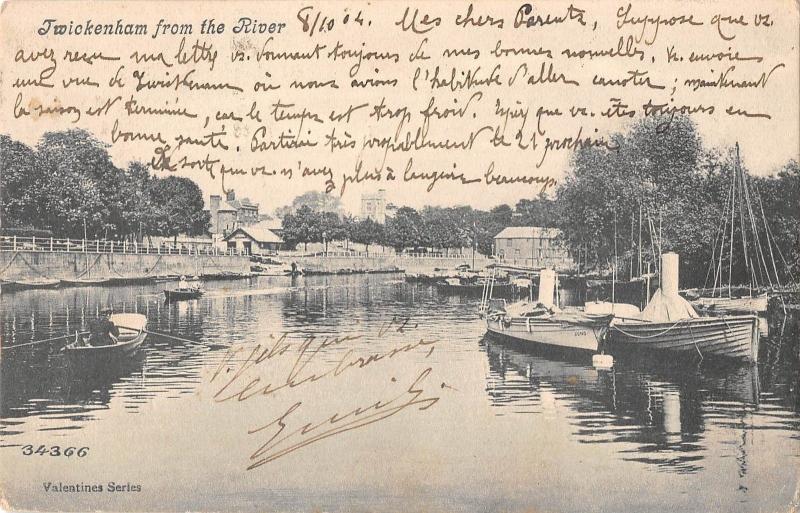 Twickenham from the River
8/10 04. Mes chers Parents, Suppose que vs.
avez reçu ma lettre vs. donnant toujours de mes bonnes nouvelles. Vs. envoie
une vue de Twickenam où nous avions l'habitude d'aller canoter; maintenant
la saison est terminée, car le temps est trop froid. Espère que vs. êtes toujours en
bonne santé. Partirai très probablement le 21 prochain
De sorte que vs. n'avez plus à languir beaucoup.
V. fils que vs.
embrasse,
34366
Valentines Series